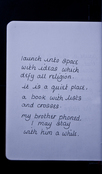 launch into space
with ideas which
defy all religion.
it is a quiet place.
a book with lines
and crosses.
my brother phoned.
I may stay
with him a while.